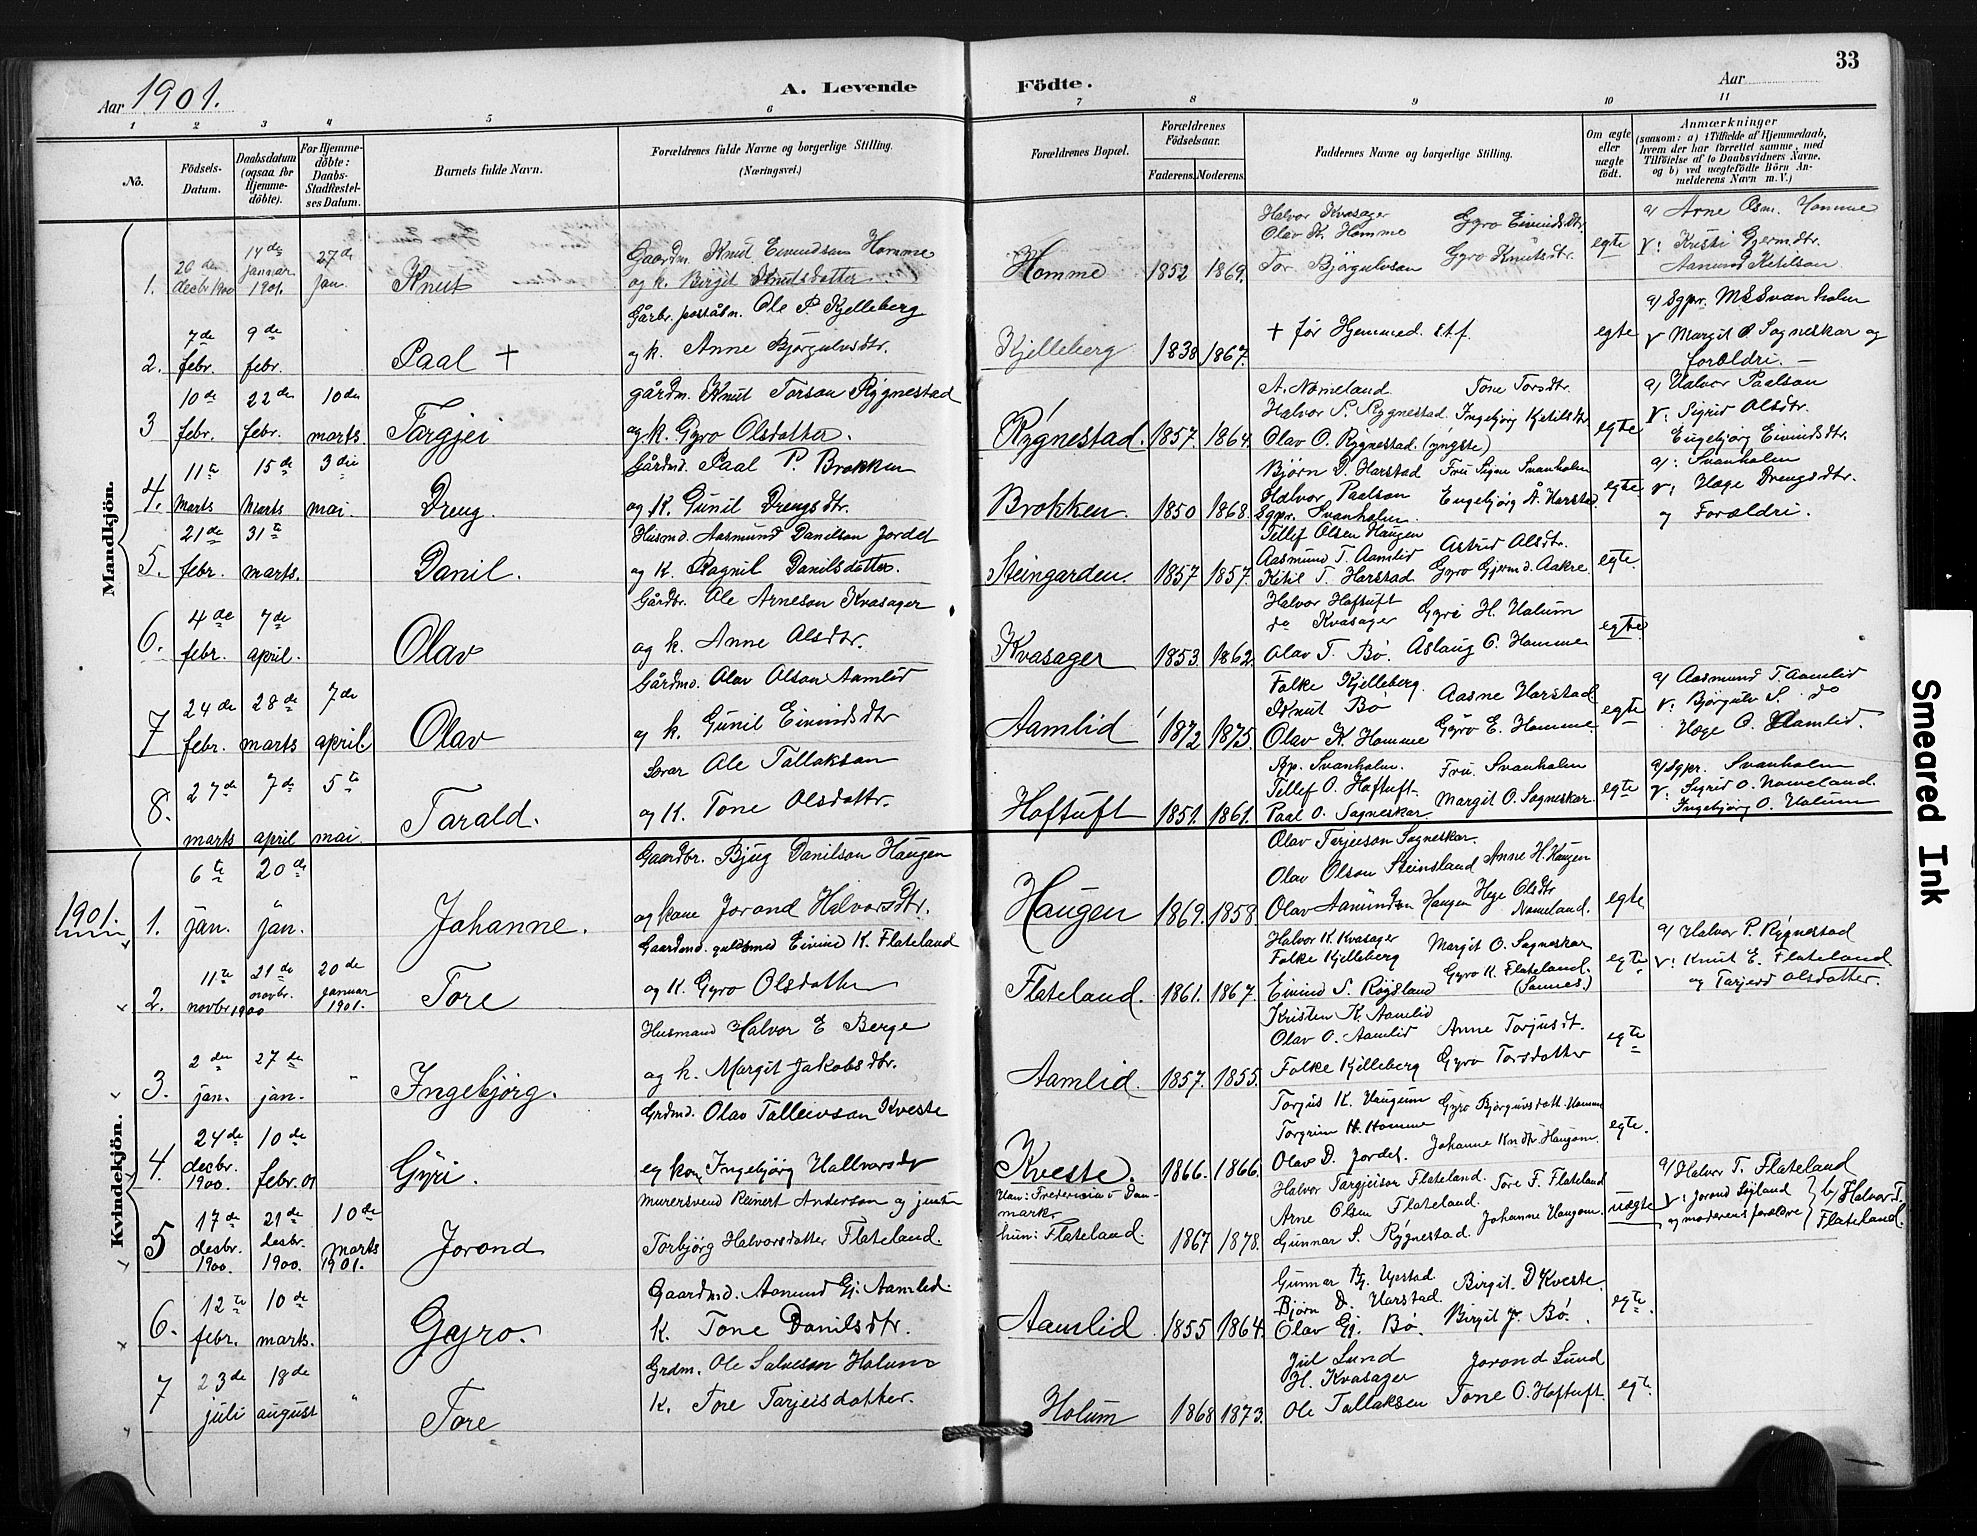 33
Aar 1901.
A. Levende
Födte.
Aar
1 2 3 4 5 6 7 8 9 10 11
No.
Födsels-
Datum.
Daabsdatum
(ogsaa for
Hjemme-
döbte).
For Hjemme-
döbte:
Daabs-
Stadfæstel-
ses Datum.
Barnets fulde Navn.
Forældrenes fulde Navne og borgerlige Stilling.
(Næringsvei.)
Forældrenes Bopæl.
Forældrenes
Födselsaar.
Faderens. Moderens.
Faddernes Navne og borgerlige Stilling.
Om ægte
eller
uægte
födt.
Anmærkninger
(saasom: a) i Tilfælde af Hjemmedaab,
hvem der har forrettet samme, med
Tilföielse af to Daabsvidners Navne,
og b) ved uægtefödte Börn An-
melderens Navn m. V.)
Mandkjön.
1. 26 de decbr 1900 14 de januar 1901. 27 de jan. Knut
Gaardm. Knut Eivindson Homme
og k. Birgit Knutsdatter
Homme 1852 1869.
Halvor Kvasager Gyro Eivindsdtr.
Olav K. Homme
Tor Bjørgulvson Gyro Knutsdtr.
egte
a/ Arne Osm. Homme
v: Kristi Gjermdtr.
Aanund Ketilson
2. 7 de febr. 9 de febr. Paal +
Gårbr. poståbn. Ole P. Kjelleberg
og k. Anne Bjørgulvsdtr.
Kjelleberg 1838 1867.
+ før Hjemmed. stf.
egte
a/ Sgpr. MSSvanholm
v Margit O Sagneskar og
forældri. —
3 10 de febr. 22 de febr. 10 de marts. Targjei
gårdm. Knut Torson Rygnestad
og k. Gyro Olsdatter.
Rygnestad. 1857. 1864.
A. Nomeland Tone Torsdtr.
Halvor S. Rygnestad. Ingebjørg Ketilsdtr
Olav O. Rygnestad. (yngste)
egte
a/ Halvor Paalson
v: Sigrid Olsdtr.
Engebjørg Eivindsdtr.
4. 11 te Marts 15 de Marts 3 die mai. Dreng.
Gårdmd. Paal P. Brokken
og K. Gunil Drengsdtr.
Brokken. 1850 1868.
Bjørn D. Harstad Fru Signe Svanholm
Halvor Paalson Engebjørg Å. Harstad.
Sgpr. Svanholm.
egte
a/: Svanholm
v: Hage Drengsdtr.
og Forældri.
5. 21 de febr. 31 te marts. Danil.
Husmd. Aasmund Danilson Jordet
og K. Ragnil Danilsdatter.
Steingarden. 1857 1857.
Tellef Olsen Haugen Astrid Alsdtr.
Aasmund T. Aamlid
Kitil T. Harstad. Gyro Gjermd. Aakre.
egte.
6. 4 de febr. 7 de april. Olav
Gårdbr. Ole Arneson Kvasager
og k. Anne Alsdtr.
Kvasager 1853. 1862.
Halvor Hoftuft Gyri H. Halum
do Kvasager
Olav T. Bø. Åslaug O. Homme
egte
7 24 de febr. 28 de marts 7 de april Olav
Gårdmd. Olav Olson Aamlid
og k. Gunil Eivindsdtr
Aamlid 1872 1875.
Folke Kjelleberg. Aasne Harstad
Knut Bø
Olav K. Homme Gyro E. Homme.
egte
a/ Aasmund T. Aamlid
v. Bjørgulv S. do
Hoge O. Aamlid.
8. 27 de marts 7 de april 5 te mai. Tarald.
Ole Tallakson
og K. Tone Olsdattr.
Hoftuft 1851. 1861.
Sgp. Svanholm. Fru. Svanholm
Tellef O. Hoftuft.
Paal O. Sagneskar Margit O. Sagneskar.
egte
a/ Sgpr. Svanholm
v: Sigrid O. Nomeland.
Ingebjørg O. Halum
Kvindekjön.
1901.
1. 6 te jan. 20 de jan. Johanne.
Gaardbr. Bjug Danilson Haugen
og kone Jorond Halvorsdtr.
Haugen 1869. 1858.
Olav Tarjeison Sagneskar.
Olav Olson Steinsland Anne H. Haugen
Olav Aamundsn Haugen Hege Olsdtr Nomeland.
egte
2. 11 te novbr 1900 21 de novbr. 20 de januar 1901. Tore
Gaardmd. guldsmed Eivind K. Flateland
og K. Gyro Olsdatter
Flateland. 1861. 1867.
Halvor K. Kvasager Margit O. Sagneskar
Folke Kjelleberg Gyro K. Flateland.
Eivind S. Rogsland (Sannes.)
egte.
a/ Halvor P. Rygnestad
v: Knut E. Flateland
og Tarjerd Olsdatter.
3. 2 den jan. 27 de jan. " Ingebjørg.
Husmand Halvor E Berge
og k. Margit Jakobsdtr.
Aamlid. 1857. 1855.
Kristen K. Aamlid
Olav O. Aamlid Anne Torjusdt.
Folke Kjelleberg Gyro Torsdatter
egte
4. 24 de decbr. 1900. 10 de febr. 01 Gyri.
Grdmd. Olav Talleivson Kveste
og kon Ingebjørg Hallvorsdt
Kveste. 1866. 1866.
Torjus K. Haugum Gyro Bjørgulvsdatt. Homme
Torgrim H. Homme
Olav D. Jordet. Johanne Kndtr. Haugom.
egte.
5 17 de desbr. 1900. 21 de desbr. 1900. 10 de marts 1901. Jorond
murersvend Reinert Anderson og jenten
Torbjørg Halvorsdatter Flateland.
Han: Fredericia i Dan-
mark.
hun: Flateland. 1867 1878.
Halvor Targjeison Flateland. Tore F. Flateland
Arne Olsen Flateland.
Gunnar S. Rygnestad. Johanne Haugom.
uægte
a/ Halvor T. Flateland
v: Jorond Løjland
og moderens forældre
b/ Halvor T.
Flateland.
6. 12 te febr. 10 de marts. Gyro.
Gaardmd. Aamund Gj. Aamlid.
k. Tone Danilsdtr.
Aamlid. 1855 1864.
Gunnar Bj. Upstad Birgit. D Kveste.
Bjørn D. Harstad.
Olav Gj. Bø. Birgit J. Bø.
egte.
7 23 de juli 18 de august " Tore
Grdm. Ole Salveson Holum
K. Tore Tarjeisdatter.
Holum 1868 1873.
Juel Lund Jorond Lund
H. Kvasager
Ole Tallaksen Tone O. Hoftuft.
egt.
Smeared Ink